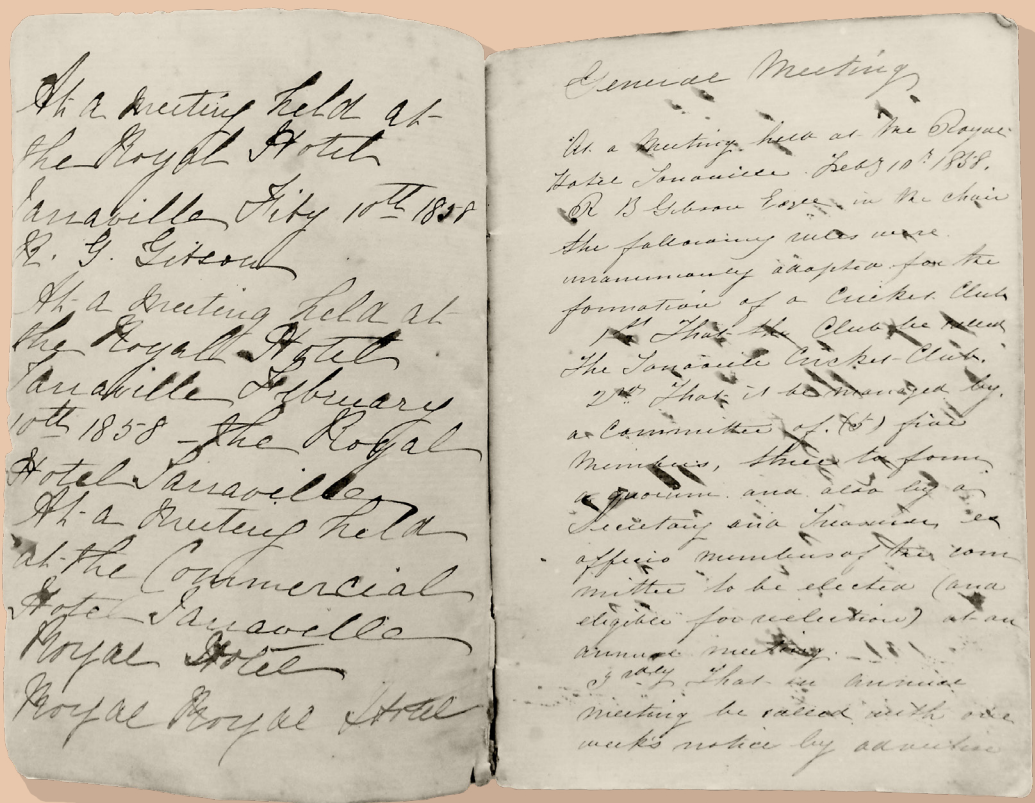 At a meeting held at
the Royal Hotel
Tanaville Feby 10th 1858
R. G. Gibson
At a meeting held at
the Royall Hotel
Tanaville February
10th 1858 - the Royal
Hotel Tanaville
At a meeting held
at the Commercial
Hotel Tanaville
Royal Hotel
Royal Royal Hotel
General Meeting
At a Meeting held at the Royal
Hotel Feby 10th 1858.
R B Gibson Esqre in the chair
the following rules were
unanimously adopted for the
formation of a Cricket Club
1st That the Club be called
The Cricket Club.
2nd That it be managed by
a Committee of (5) five
Members, three to form
a quorum and also by a
Secretary and Treasurer ex
officio members of the com
mittee to be elected (and
eligible for reelection) at an
annual meeting.
3rdly That an annual
meeting be called with one
weeks notice by advertise